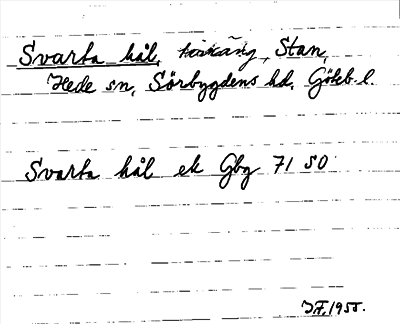 Svarta hål, Stan,
Hede sn, Sörbygdens hd, Göteb. l.
Svarta hål ek Gbg 71 SO
1955.